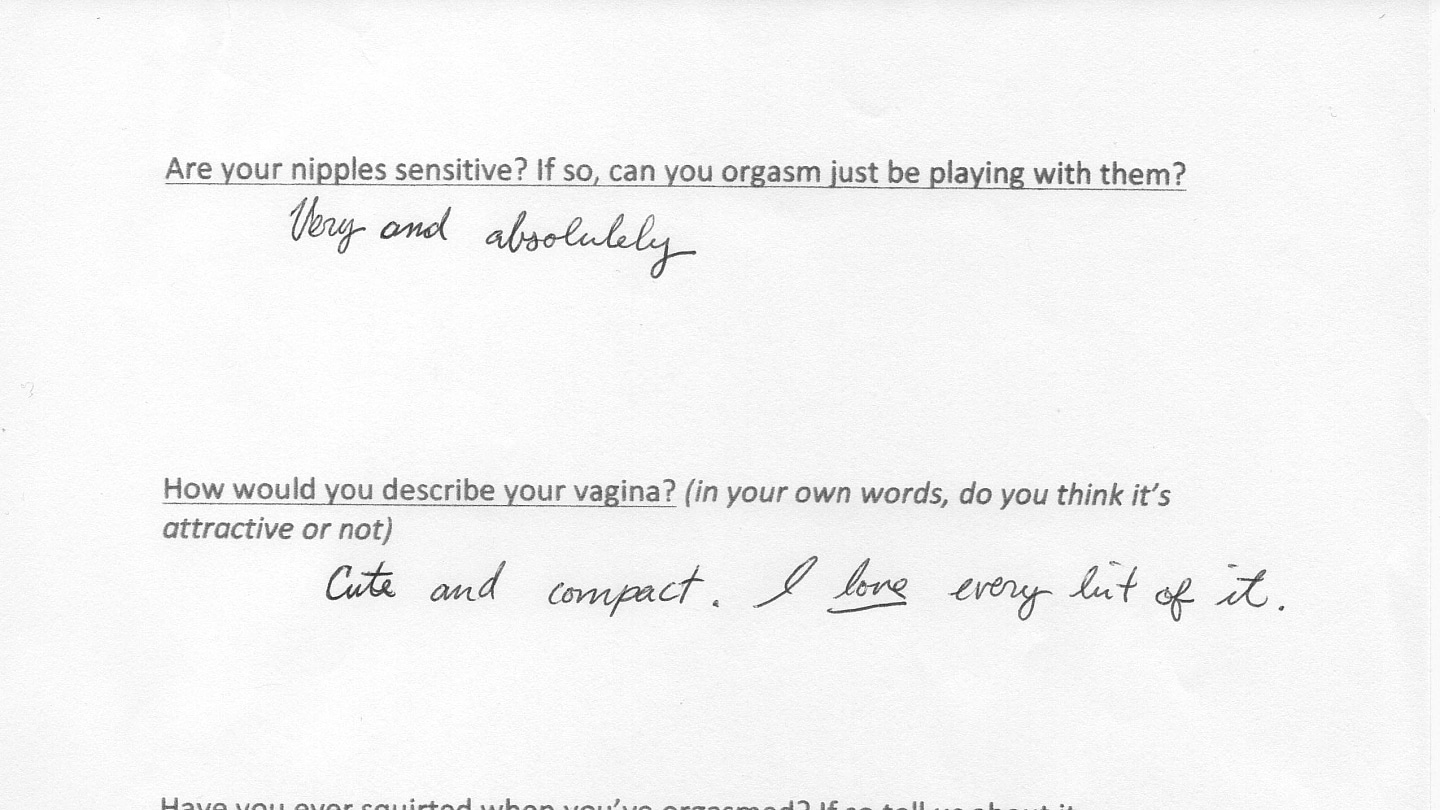 Are your nipples sensitive? If so, can you orgasm just be playing with them?
Very and absolutely
How would you describe your vagina? (in your own words, do you think it's
attractive or not)
Cute and compact. I love every bit of it.
Have you ever squirted when you've orgasmed? If so tell us about it